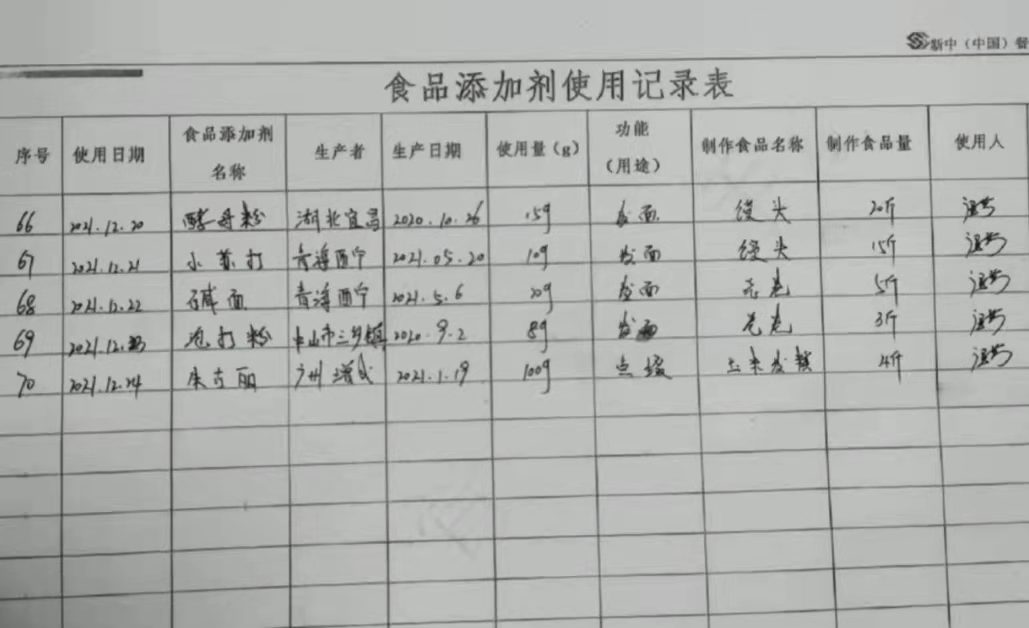 新中（中国）餐
食品添加剂使用记录表
序号 使用日期 食品添加剂名称 生产者 生产日期 使用量（g） 功能（用途） 制作食品名称 制作食品量 使用人
66 2021.12.20 酵母粉 湖北宜昌 2020.10.26 15g 发面 馒头 20斤
67 2021.12.21 小苏打 青海西宁 2021.05.20 10g 发面 馒头 15斤
68 2021.12.22 碱面 青海西宁 2021.5.6 20g 发面 花卷 5斤
69 2021.12.23 泡打粉 中山市三乡镇 2020.9.2 8g 发面 花卷 3斤
70 2021.12.24 朱古丽 广州增城 2021.1.19 100g 点缀 玉米发糕 4斤